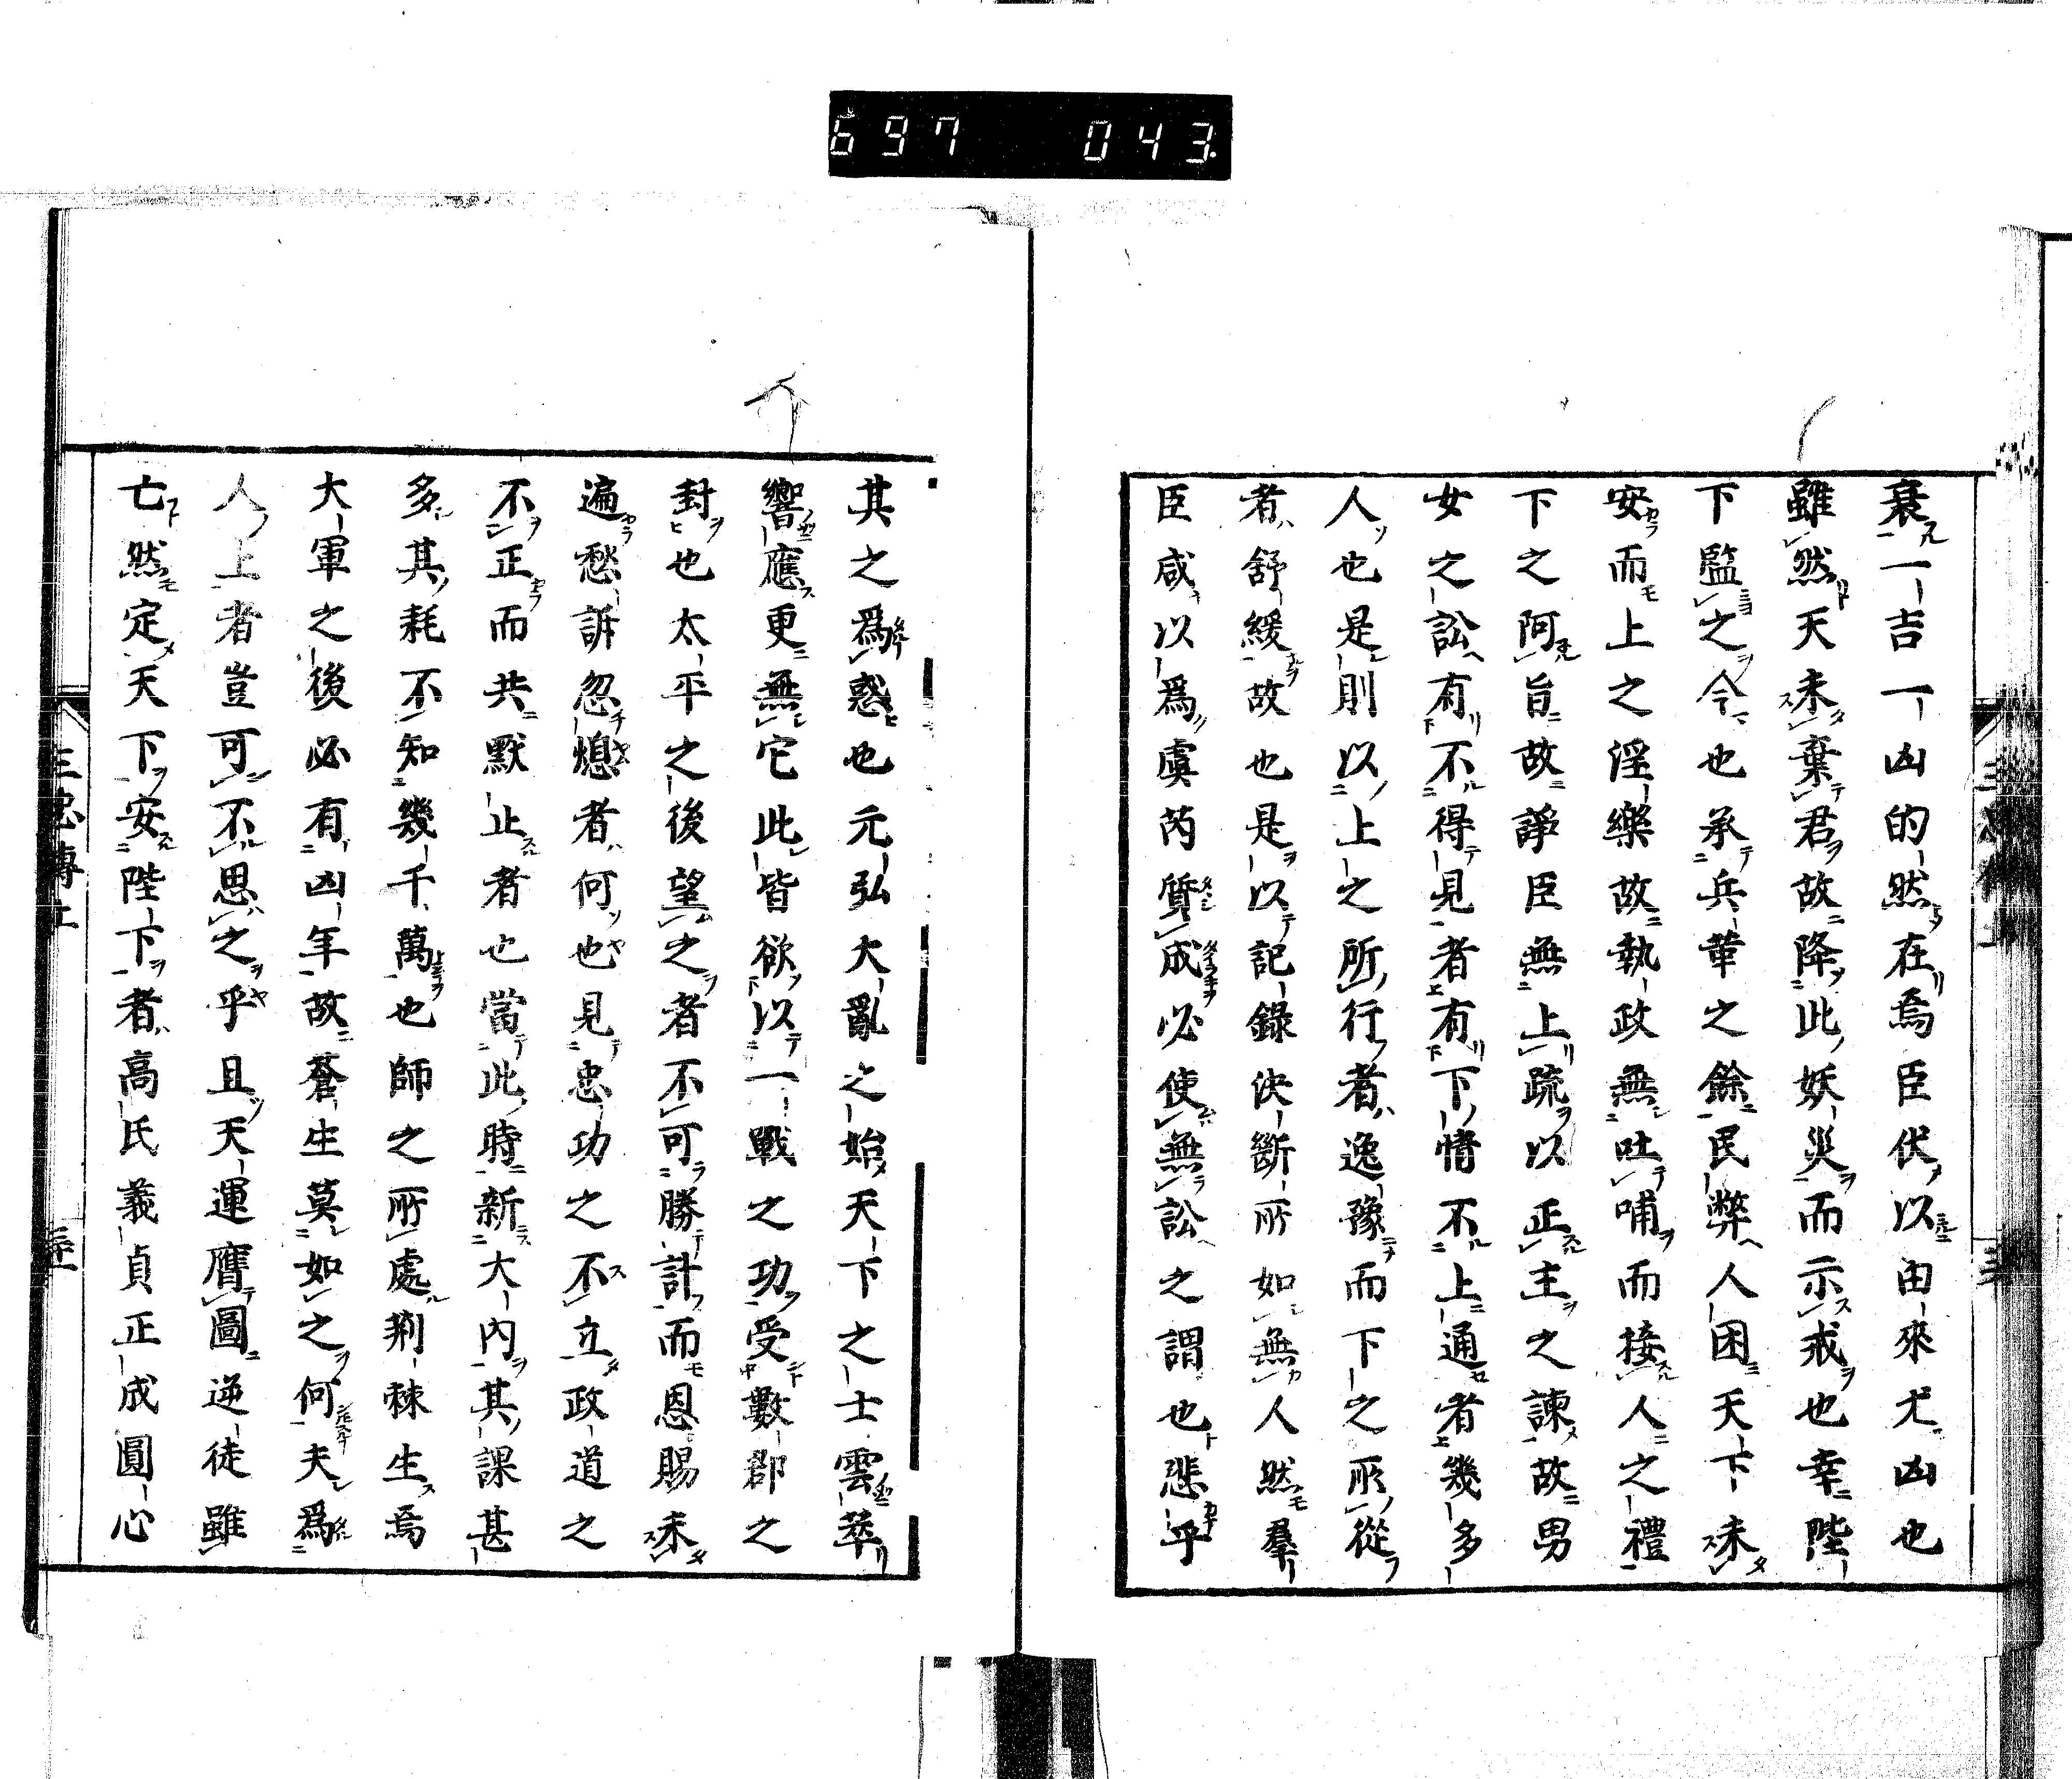 697 043
衰一吉一凶的然在焉臣伏以由來尤凶也
雖然天未棄君故降此妖災而示戒也幸陛
下監之今也承兵革之餘民弊人困天下未
安而上之淫樂故執政無吐哺而接人之禮
下之阿旨故諍臣無上疏以正主之諫故男
女之訟有不得見者有下情不上通者幾多
人也是則以上之所行者逸豫而下之所從
者舒緩故也是以記錄決斷所如無人然羣
臣咸以爲虞芮質成必使無訟之謂也悲乎
其之爲惑也元弘大亂之始天下之士雲萃
響應更無它此皆欲以一戰之功受數郡之
封也太平之後望之者不可勝計而恩賜未
遍愁訴忽熄者何也見忠功之不立政道之
不正而共默止者也當此時新大内其課甚
多其耗不知幾千萬也師之所處荆棘生焉
大軍之後必有凶年故蒼生莫如之何夫爲
人上者豈可不思之乎且天運膺圖逆徒雖
亡然定天下安陛下者高氏義貞正成圓心
三忠傳上